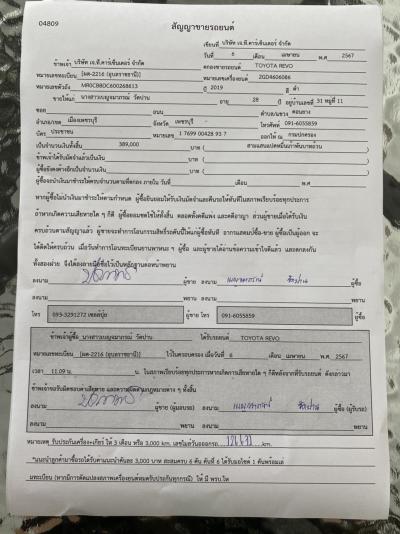 04809
สัญญาขายรถยนต์
เขียนที่ บริษัท เจ.ที.คาร์เซ็นเตอร์ จำกัด
วันที่ 6 เดือน เมษายน พ.ศ 2567
ข้าพเจ้า บริษัท เจ.ที.คาร์เซ็นเตอร์ จำกัด ตกลงขายรถยนต์ TOYOTA REVO
หมายเลขทะเบียน [ผต-2216 (อุบลราชธานี)] หมายเลขเครื่องยนต์ 2GD4606086
หมายเลขตัวถัง MR0CB8DC600268613 ปี 2019 สี ดำ
ขายให้แก่ นางสาวเบญจมาภรณ์ วัดปาน อายุ 28 ปี อยู่บ้านเลขที่ 31 หมู่ที่ 11
ซอย ถนน ตำบล/แขวง ดอนยาง
อำเภอ/เขต เมืองเพชรบุรี จังหวัด เพชรบุรี โทรศัพท์ 091-6055859
บัตร ประชาชน หมายเลข 1 7699 00428 93 7 ออกให้ ณ กรมปกครอง
เป็นจำนวนเงินทั้งสิ้น 389,000 บาท ( สามแสนแปดหมื่นเก้าพันบาทถ้วน )
ข้าพเจ้าได้รับมัดจำแล้วเป็นเงิน บาท ( )
ผู้ซื้อยังคงค้างอีกเป็นจำนวนเงิน บาท ( )
ผู้ซื้อจะนำเงินมาชำระให้ครบจำนวนตามที่ตกลง ภายใน วันที่ เดือน พ.ศ
หากผู้ซื้อไม่นำเงินมาชำระให้ตามกำหนด ผู้ซื้อยินยอมให้ริบเงินมัดจำและคืนรถให้ทันทีในสภาพเรียบร้อยทุกประการ
ถ้าหากเกิดความเสียหายใด ๆ ก็ดี ผู้ซื้อยอมชดใช้ให้ทั้งสิ้น ตลอดทั้งคดีแพ่ง และคดีอาญา ส่วนผู้ขายเมื่อได้รับเงิน
ครบถ้วนตามสัญญาแล้ว ผู้ขายจะทำการโอนกรรมสิทธิ์รถคันนี้ให้แก่ผู้ซื้อทันที
ทั้งสองฝ่าย จึงได้ลงลายมือชื่อไว้เป็นหลักฐานต่อหน้าพยาน
ลงนาม ผู้ขาย ลงนาม เบญจมาภรณ์ วัดปาน ผู้ซื้อ
ลงนาม พยาน ลงนาม พยาน
โทร ผู้ขาย โทร 091-6055859 ผู้ซื้อ
ข้าพเจ้าผู้ซื้อ นางสาวเบญจมาภรณ์ วัดปาน ได้รับรถยนต์ TOYOTA REVO
หมายเลขทะเบียน [ผต-2216 (อุบลราชธานี)] ไว้ในครอบครอง เมื่อวันที่ 6 เดือน เมษายน พ.ศ. 2567
เวลา 11.09 น. ในสภาพเรียบร้อยทุกประการหากเกิดการเสียหายใด ๆ ก็ดีหลังจากที่รับรถยนต์ ดังกล่าวมา
ข้าพเจ้าจะรับผิดชอบความเสียหาย และความผิดตามกฎหมายต่าง ๆ ทั้งสิ้น
ลงนาม ผู้ขาย (ผู้มอบรถ) ลงนาม เบญจมาภรณ์ วัดปาน ผู้ซื้อ (ผู้รับรถ)
ลงนาม พยาน ลงนาม พยาน
หมายเหตุ รับประกันเครื่อง+เกียร์ ให้ 3 เดือน หรือ 3,000 km. เลขไมล์วันออกรถ km.
*แนะนำลูกค้ามาซื้อรถได้รับค่าแนะนำคันละ 3,000 บาท สะสมครบ 6 คัน คันที่ 6 ได้รับมอไซค์ 1 คันพร้อมเล่
มทะเบียน